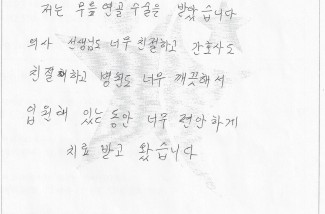 저는 무릎 연골 수술은 받았습니다
의사 선생님도 너무 친절하고 간호사도
친절하고 병원도 너무 깨끗해서
입원해 있는동안 너무 편안하게
치료 받고 왔습니다